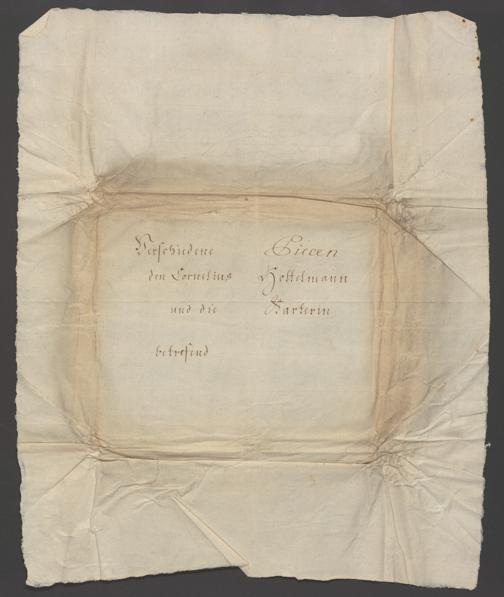 Verschiedene Piecen
den Cornelius Hettelmann
und die Karterin
betrefend